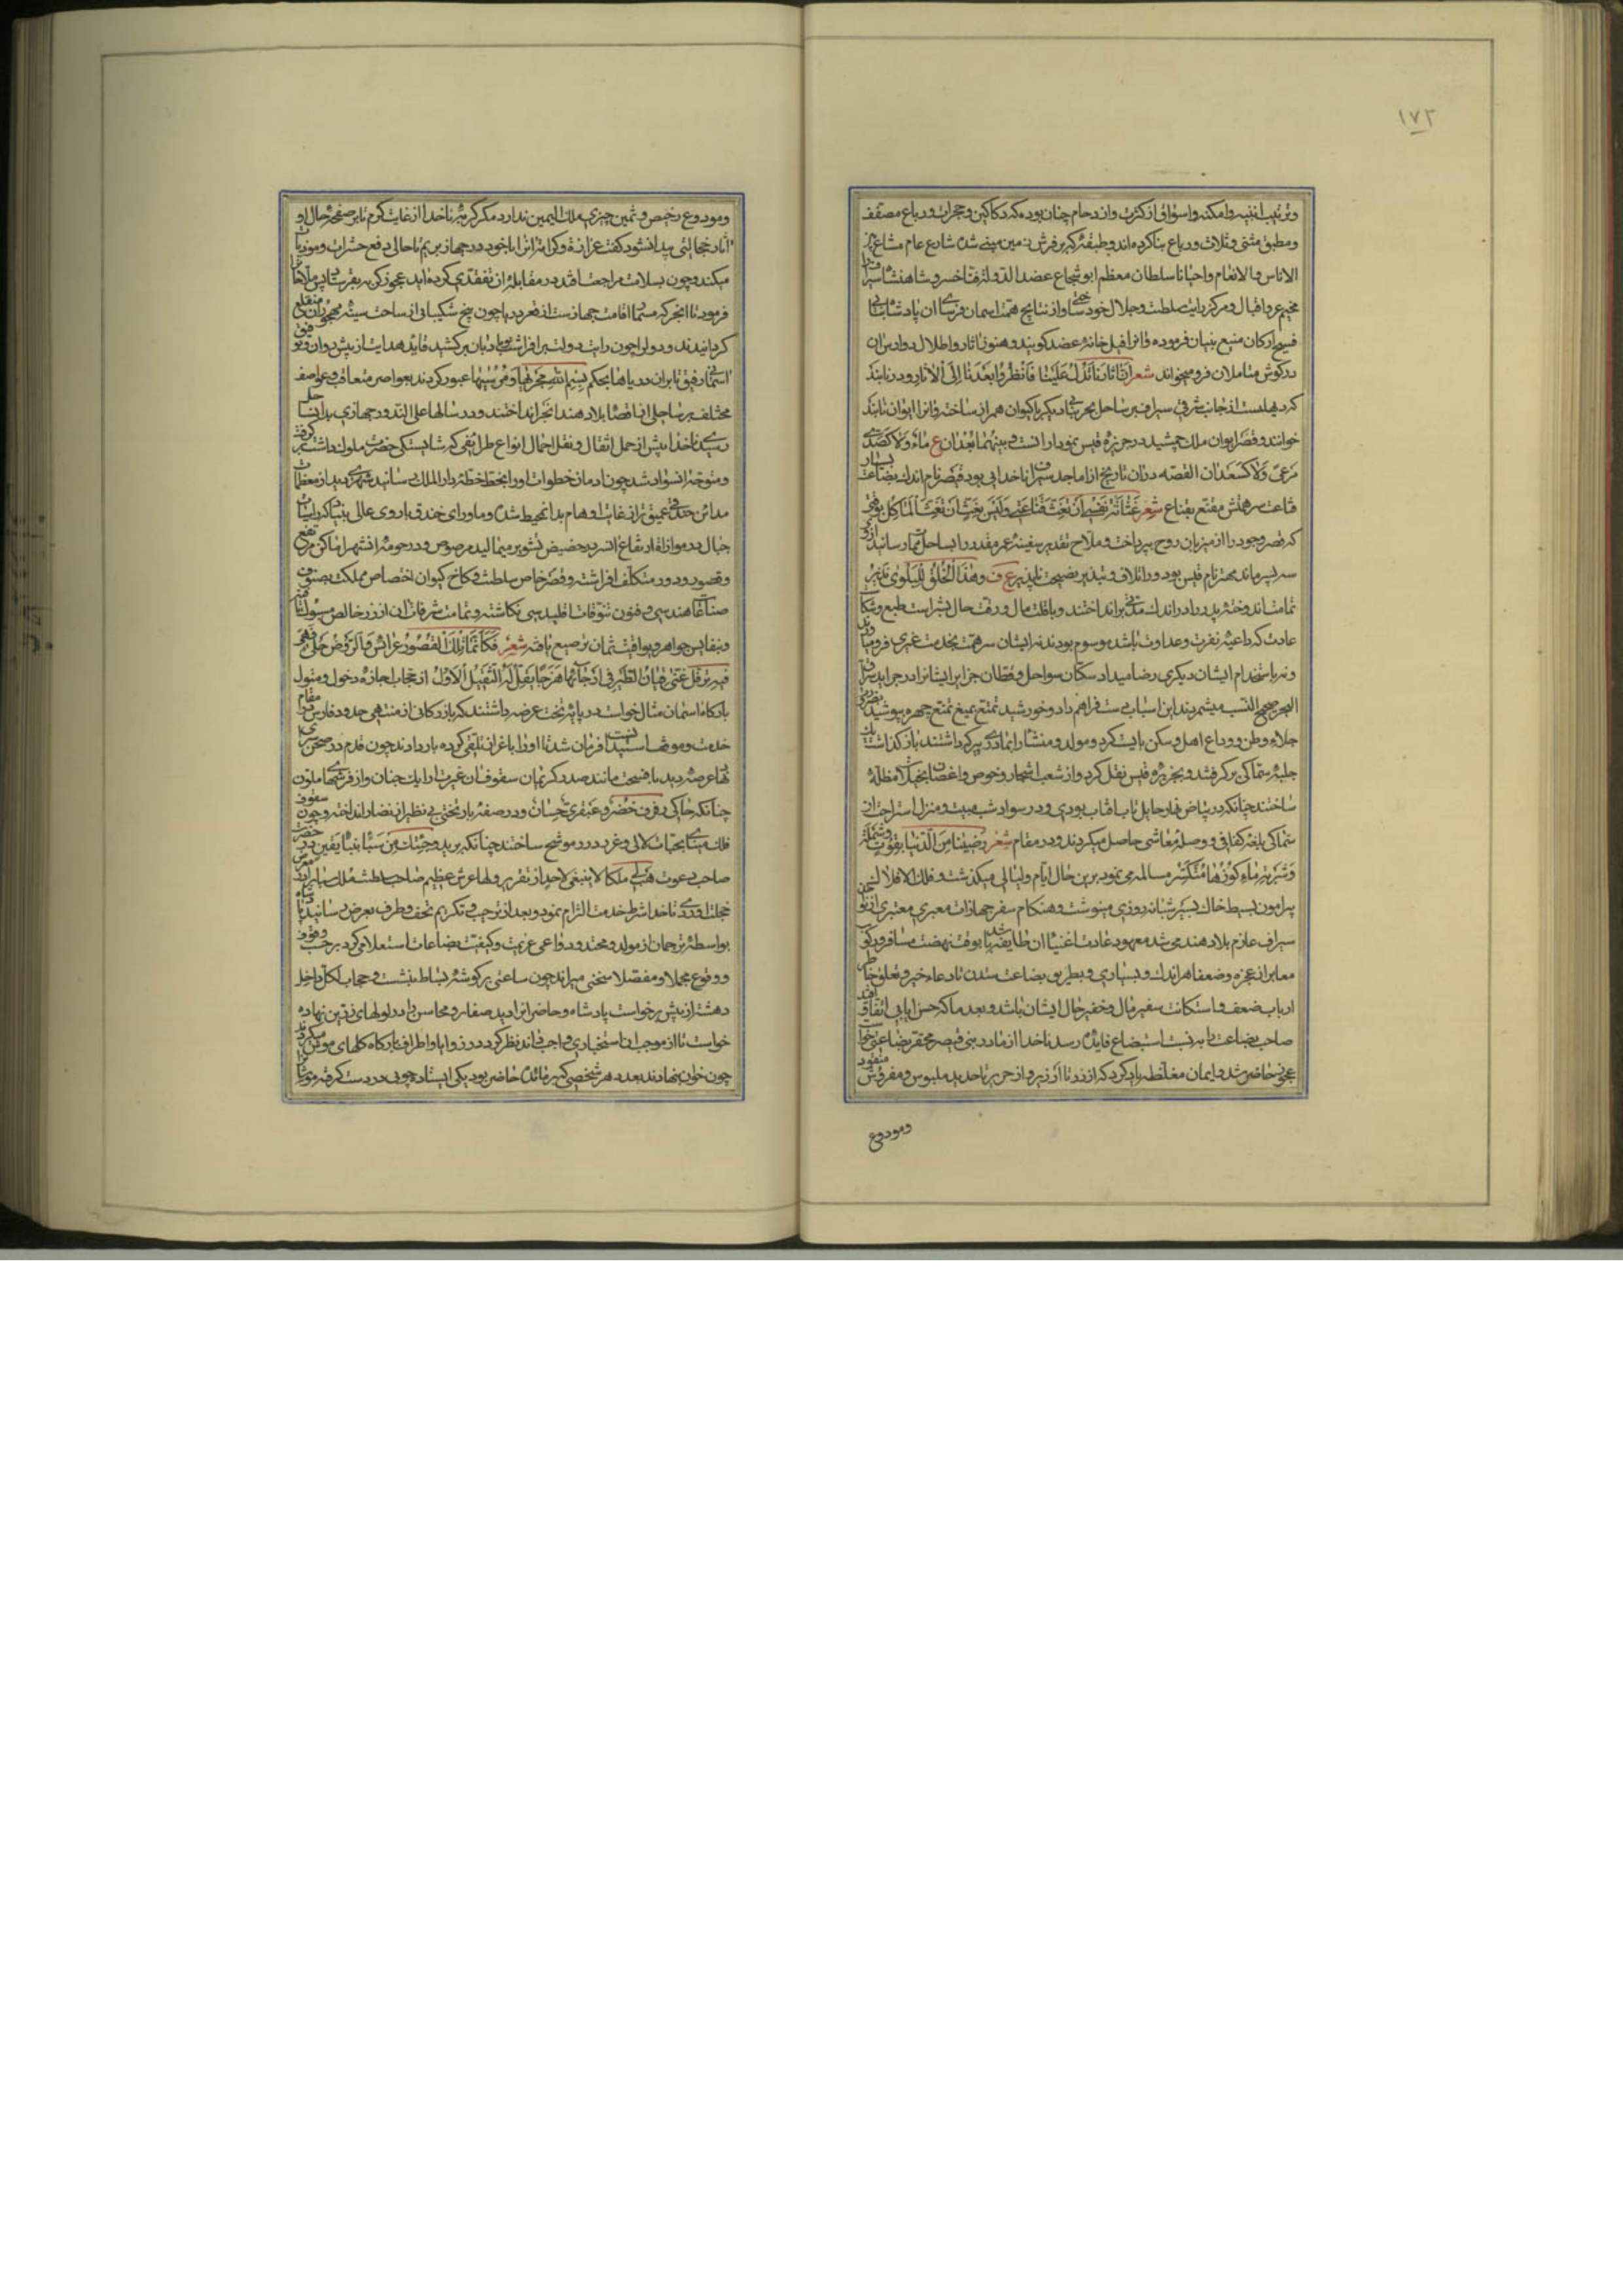 ۱۷۲
وترتیب ابنیه وامکنه واسواق از کثرت وازدحام چنان بوده که دکاکین وحجرات ورباع مصقف
ومطبق مثنی وثلاث ورباع بنا کرده اند وطبقه که بر فرش زمین مبنی شده شارع عام مشاع
الاناس والانعام واحیانا سلطان معظم ابو شجاع عضد الدوله فناخسرو شاهنشاه سیراف را
مخیم عز واقبال ومرکز رایات سلطنت وجلال خود ساختی واز نتایج همت اسمان فرسای ان پادشاه
فسیح ارکان منیع بنیان فرموده وانرا فیل خانه عضد کویند وهنوز اثار واطلال دوارس ان
در کوش متاملان فرو میخواند شعر ان اثارنا تدل علینا فانظروا بعدنا الی الاثار ودر تابند
که دیهیست از جانب شرقی سیراف بر ساحل بحر بنائی دیکر با کیوان همراز ساخته وانرا ایوان تابند
خوانند وقصر ایوان ملک جمشید در جزیره قیس نمودار انست وبینهما بعدان ع ماء ولا کصدی
مرعی ولا کسعدان القصه دران تاریخ از اماجد سیراف ناخدایی بود قیصر نام اندک بضاعت
قناعت همتش مقنع بقناع شعر
که قصر وجود را از میزبان روح بپرداخت وملاح تقدیر سفینه عمر مقدر را بساحل ممات رسانید
سه پسر ماند مهتر نام قیس بود ودر اتلاف وتبذیر نصیحت ناپذیر ع ف وهذا الخلق للبلوی نذیر
تمامت اندوخته پدر را در اندک مدتی بر انداختند وبا قلت مال ورقت حال بشراست طبع
عادت که داعیه نفرت وعداوت باشد موسوم بودند نه ایشان سر همت بخدمت غیری فرو
ونه باستخدام ایشان دیکری رضا میداد سکان سواحل وقطان جزایر ایشانرا در جراید
البحر صحیح النسب میشمردند این اسباب دست فراهم داد وخورشید تمتع بمیغ تمنع چهره بپوشید
جلاء وطن ووداع اهل وسکن بایست کرد ومولد ومنشا را بمادری پیر که داشتند باز کذاشت
جلیه سماکی بر کرفتند وبجزیره قیس نقل کرد واز شعب اشجار وخوص واغصان مظله
ساختند چنانکه در بیاض نهار حایل تاب افتاب بودی ودر سواد شب مبیت ومنزل استراحت از
سماکی بلغه کفافی ووصله معاشی حاصل میکردند ودر مقام شعر رضینا من الدنیا بقوت وشملة
وشربة ماء کوزها متکسر مسالمه می نمود برین حال ایام ولیالی میکذشت وفلک الافلاک
پیرامون بسیط خاک بسیر شبانه روزی مینوشت وهنکام سفر جهازات معبری معتبری از
سیراف عازم بلاد هند می شد معهود عادت اغنیاء ان طایفه بوقت نهضت مسافر
معابر از عجزه وضعفا هر اندک وبسیاری وبطریق بضاعت ستدن تا دعاء خیر وتعلق خاطر
ارباب ضعف واستکانت سفیر مال وخفیر حال ایشان باشد وبعد ما که حسن ایاب اتفاق افتد
صاحب بضاعت را بر نسبت استبضاع فایده رسد ناخدا از مادر بنی قیصر محقر بضاعتی خواست
عجوز حاضر شد وایمان مغلظه یاد کرد که از زر تا ارزیز واز حریر تا حدید ملبوس ومفروش
ومودوع
ومودوع رخیص وثمین چیزی ملک الیمین ندارد مکر کربه ناخدا از غایت کرم تا بر صفحه حال او
اثار خجالتی پیدا نشود کفت عزازة وکرامة انرا با خود در جهاز بریم تا حالی دفع حشرات وموذیات
میکند وچون بسلامت مراجعت افتد در مقابله ان تفقدی کرده اید عجوز کربه بفرستاد پس ملاحان را
فرمود تا انجر که متمنا اقامت جهازست از قعر دریا چون بیخ شکیبائی از ساحت سینه مهجوران منقلع
کردانیدند ودولرا چون رایت دولت بر افراشت وبادبان بر کشید قاید هدایت از پیش دوان وتوفیق
اسمانی رفیق تا بران دریاها بحکم بسم الله مجریها ومرسیها عبور کردند بعواصر متعاقب وعواصف
مختلف بر ساحلی از اقصاء بلاد هند انجر انداختند ودر سالها علی الندور جهازی بدان ساحل
رسیدی ناخدا پیش از حمل اثقال ونقل احمال انواع طرایفی که شایستکی حضرت ملوک داشت برکرفت
ومتوجه ان سواد شد چون ادمان خطوات او را بخط خطه دار الملک رسانید شهری دید از معظمات
مداین خندقی عمیق تر از غایت اوهام بدان محیط شده وماورای خندق باروی عالی بنیاد که راسیات
جبال در موازاة ارتفاع ان سر در حضیض تشویر میمالید مرصوص ودر حومه ان شهر اماکن مرتفع
وقصور ودور متکلف افراشته وقصر خاص سلطنت وکاخ کیوان اختصاص مملکت بصنوف
صناعات هندسی وفنون تنوقات اقلیدسی نکاشته وتمامت شرفات ان از زر خالص مسبوک ساخته
ونفایس جواهر ویواقیت ثمان ترصیع یافته شعر فکانما تلک القصور عرائس والروض حلی فهی
فیه ترفل غنی قیان الطیر فی ارجائها هزجا یقل له الثقیل الاول از حجاب اجازه دخول ومثول
بارکاه اسمان مثال خواست در پایه تخت عرضه داشتند که بازرکانی از منتهی حدود فارس در مقام
خدمت وموضع استیذان فرمان شد تا او را باعزاز تلقی کرده بار دادند چون قدم در صحن سرای
نهاد عرصه دید با فسحت مانند صدر کریمان سقوف ان غیرت ارایک جنان واز فرشهای ملون
چنانکه حاکی رفرف خضر وعبقری حسان ودر صفه بار تختی بی نظیر از نضار انداخته وچون سقوف
فلک مینائی بحبات لالی وغرر درر موشح ساختند چنانکه بریده وجئتک من سبا بنبا یقین در حضرت
صاحب دعوت هب لی ملکا لا ینبغی لاحد از تقریر ولها عرش عظیم صاحب سلطنت ملک سبا در معرض
خجلت اوردی ناخدا شرط خدمت التزام نمود وبعد از ترحیب وتکریم تحف وطرف بعرض رسانید پادشاه
بواسطه ترجمان از مولد ومحتد ودواعی عزیمت وکیفیت بضاعات استعلامی کرد بر حسب وقوف
ووقوع مجملا ومفصلا سخنی میراند چون ساعتی بر کوشه بساط بنشست وحجاب لکل داخل
دهشة از پیش برخواست پادشاه وحاضرانرا دید صفار ومحاسن را در لولهای زرین نهاده
خواست تا از موجب ان استخباری واجب داند نظر کرد در زوایا واطراف بارکاه کلهای موش میکردند
چون خوان بنهادند بعدد هر شخصی که بر مائده حاضر بود یکی ایستاده چوبی در دست کرفته